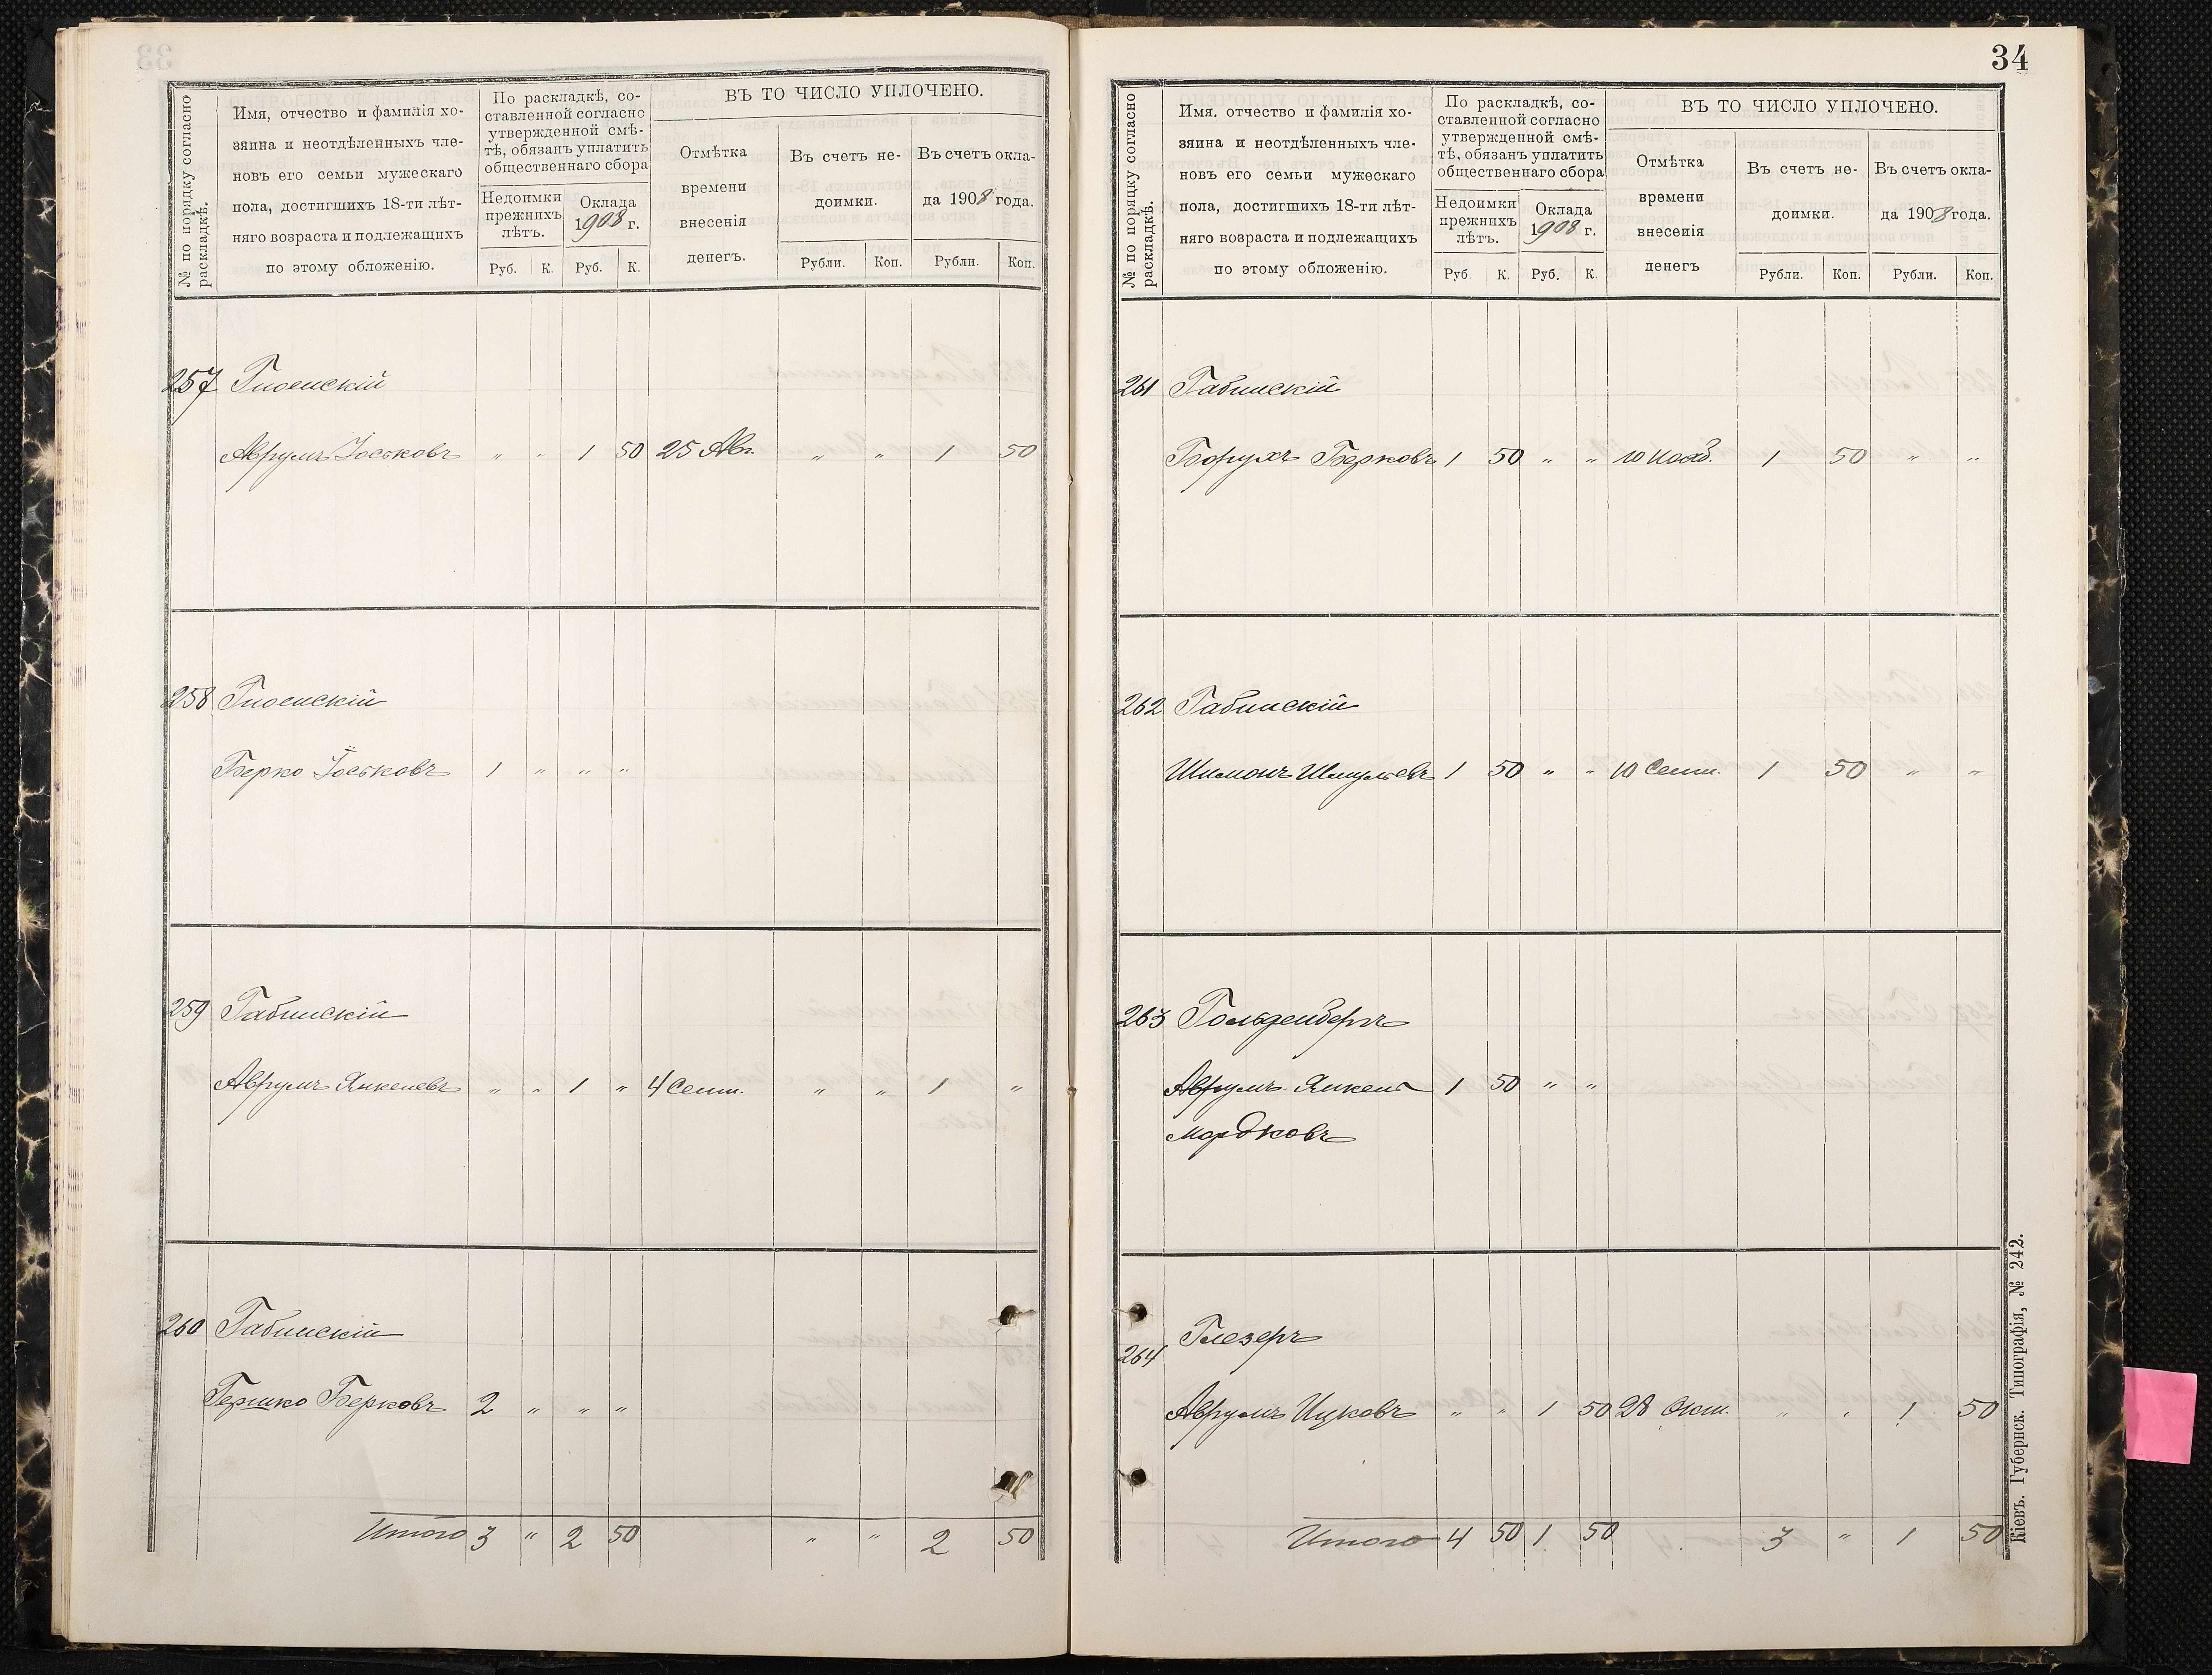 № по порядку согласно
раскладкѣ.
Имя, отчество и фамилія хо-
зяина и неотдѣленныхъ чле-
новъ его семьи мужескаго
пола, достигшихъ 18-ти лѣт-
няго возраста и подлежащихъ
по этому обложенію.
По раскладкѣ, со-
ставленной согласно
утвержденной смѣ-
тѣ, обязанъ уплатить
общественнаго сбора
Недоимки
прежнихъ
лѣтъ.
Оклада
1908 г.
Руб. К. Руб. К.
ВЪ ТО ЧИСЛО УПЛОЧЕНО.
Отмѣтка
времени
внесенія
денегъ.
Въ счетъ не-
доимки.
Въ счетъ окла-
да 1908 года.
Рубли. Коп. Рубли. Коп.
257
Аврумъ Іоськовъ " " 1 50 25 Авг. " " 1 50
258
Берко Іоськовъ 1 " " "
259 Габинскій
Аврумъ Янкелевъ " " 1 " 4 Сент. " " 1 "
260 Габинскій
Гершко Берковъ 2 " " "
Итого 3 " 2 50 " " 2 50
34
№ по порядку согласно
раскладкѣ.
Имя. отчество и фамилія хо-
зяина и неотдѣленныхъ чле-
новъ его семьи мужескаго
пола, достигшихъ 18-ти лѣт-
няго возраста и подлежащихъ
по этому обложенію.
По раскладкѣ, со-
ставленной согласно
утвержденной смѣ-
тѣ, обязанъ уплатить
общественнаго сбора
Недоимки
прежнихъ
лѣтъ.
Оклада
1908 г.
Руб К. Руб. К.
ВЪ ТО ЧИСЛО УПЛОЧЕНО.
Отмѣтка
времени
внесенія
денегъ
Въ счетъ не-
доимки.
Въ счетъ окла-
да 1908 года.
Рубли. Коп. Рубли. Коп.
261 Габинскій
Борухъ Берковъ 1 50 " " 10 Нояб. 1 50 " "
262 Габинскій
Шимонъ Шмулевъ 1 50 " " 10 Сент. 1 50 " "
263 Гольденбергъ
Аврумъ-Янкель 1 50 " "
Мордковъ
264 Глезеръ
Аврумъ Ицковъ " " 1 50 28 Окт. " " 1 50
Итого 4 50 1 50 3 " 1 50
Кіевъ. Губернск. Типографія, № 242.